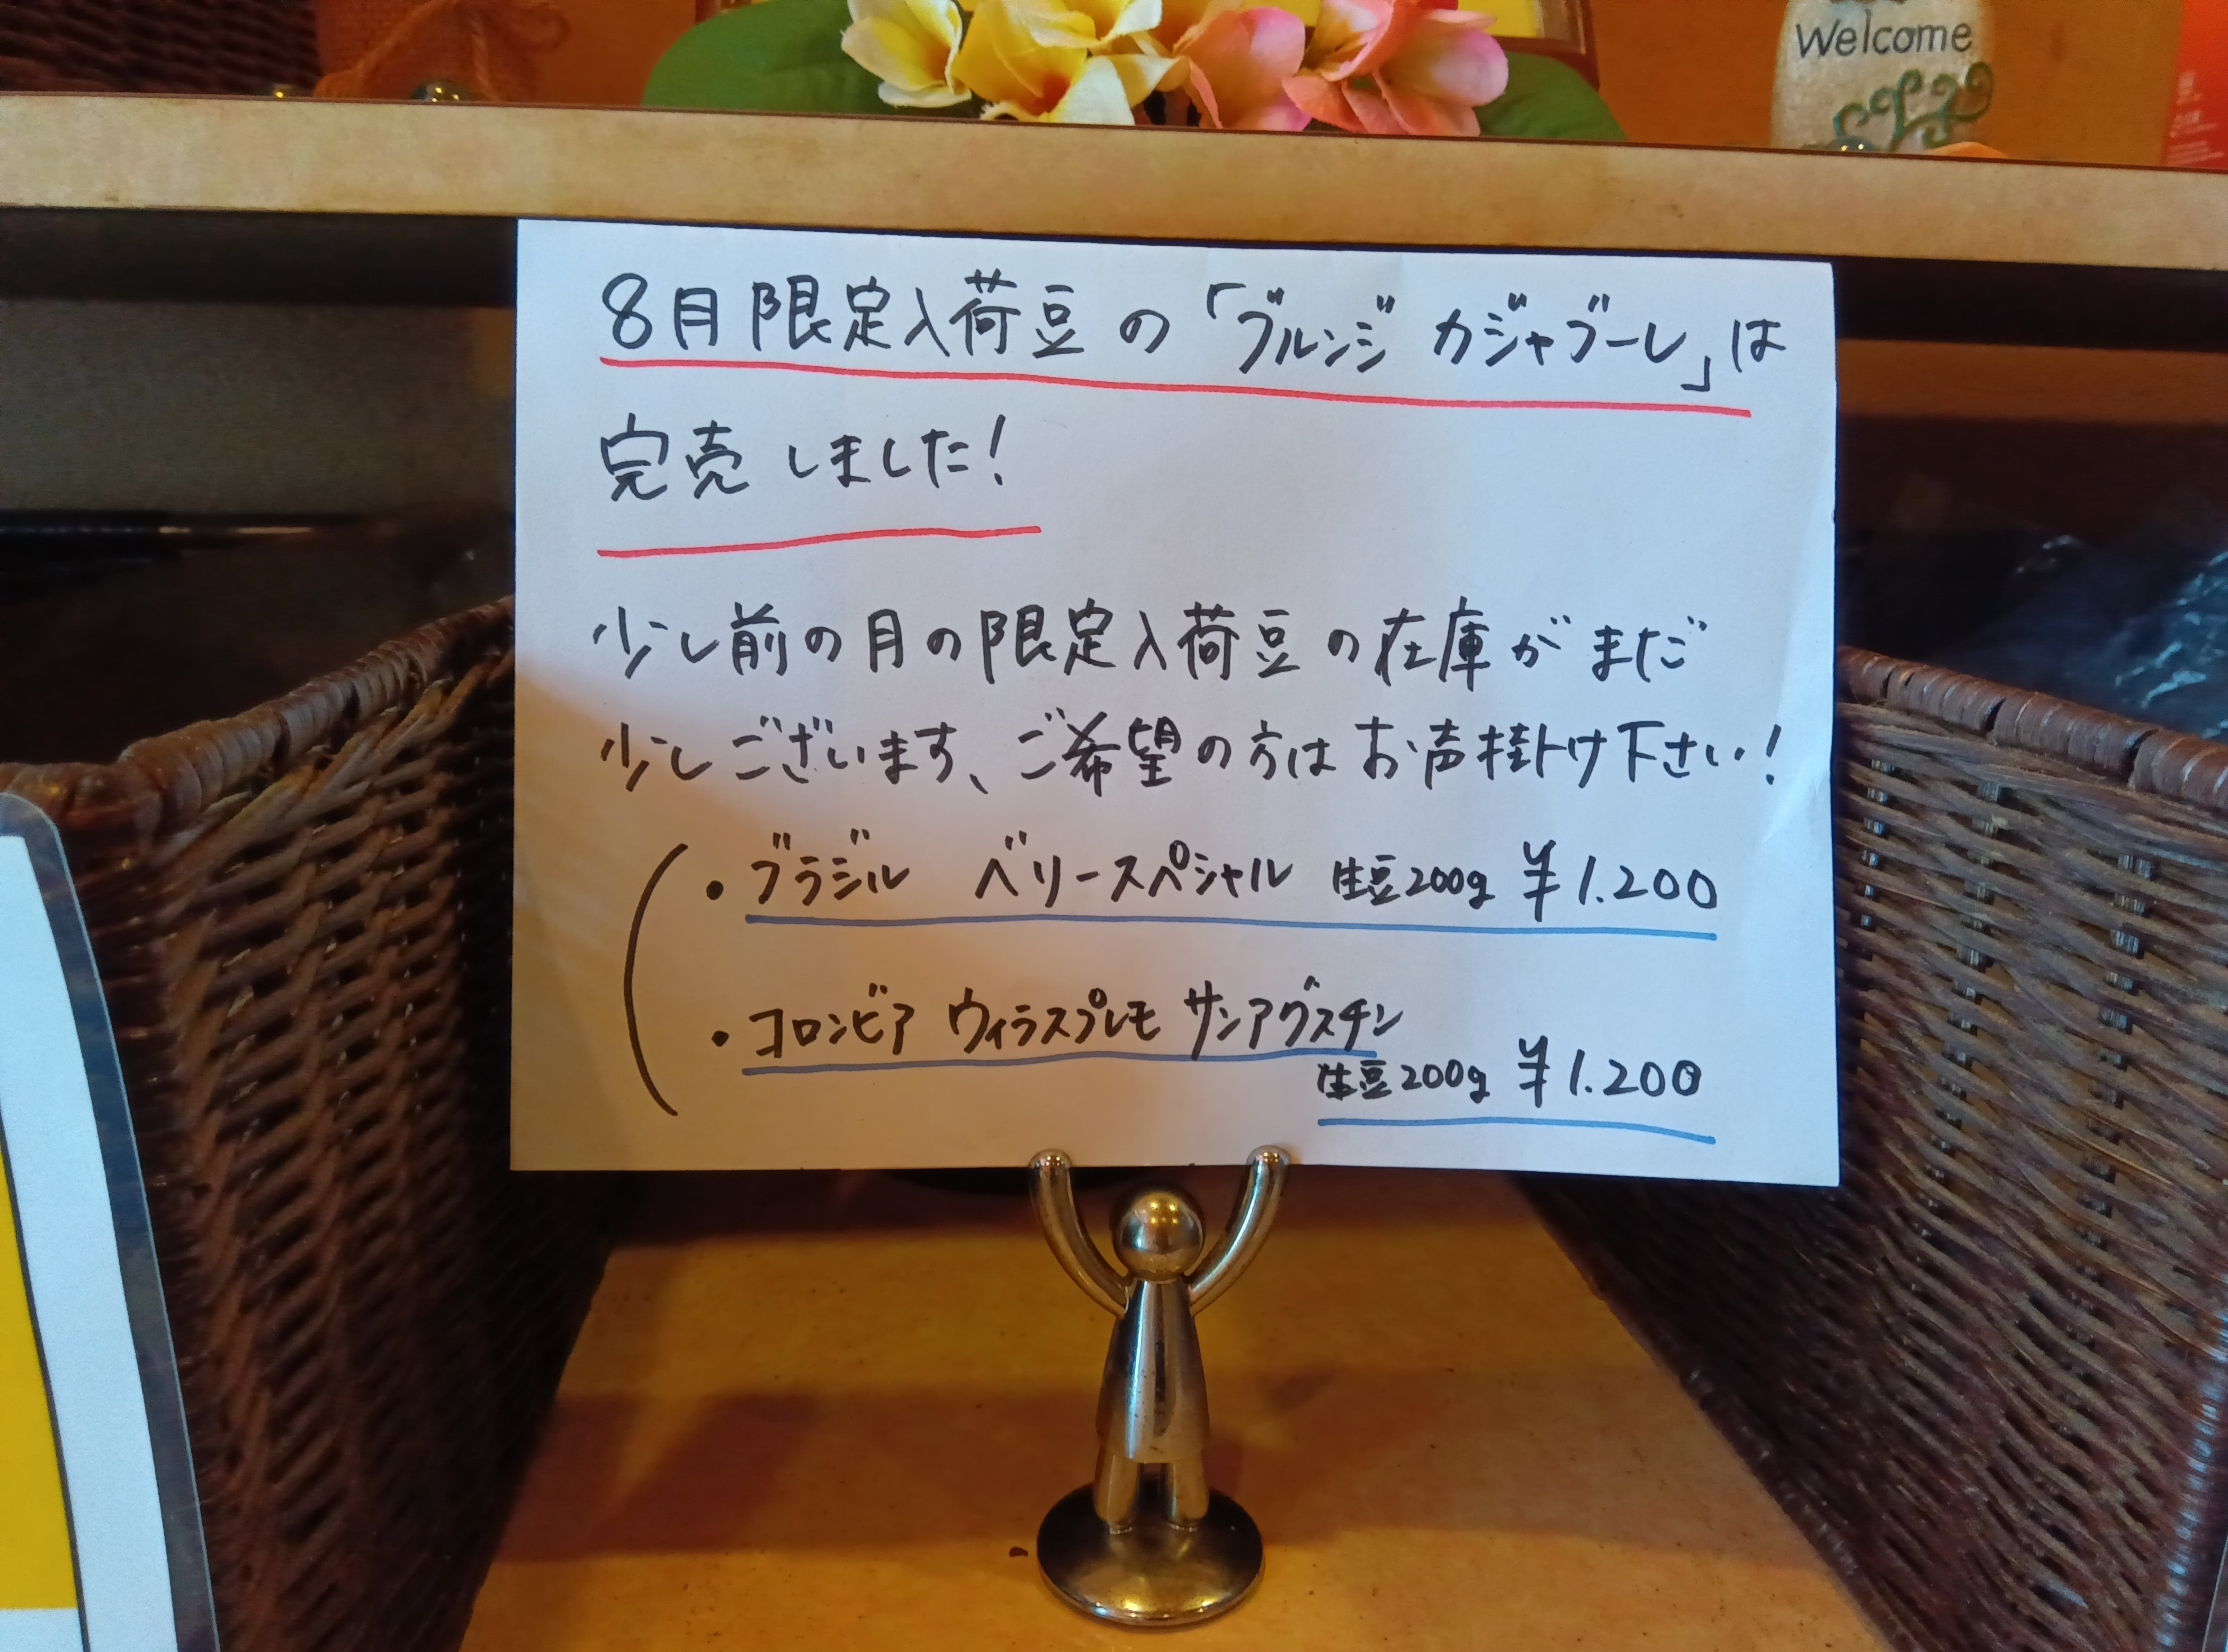 Welcome
8月限定入荷豆の「ブルンジ カジャブーレ」は
完売しました!
少し前の月の限定入荷豆の在庫がまだ
少しございます、ご希望の方はお声掛け下さい!
・ブラジル ベリースペシャル 生豆200g ¥1.200
・コロンビア ウィラスプレモ サンアグスチン
生豆200g ¥1.200